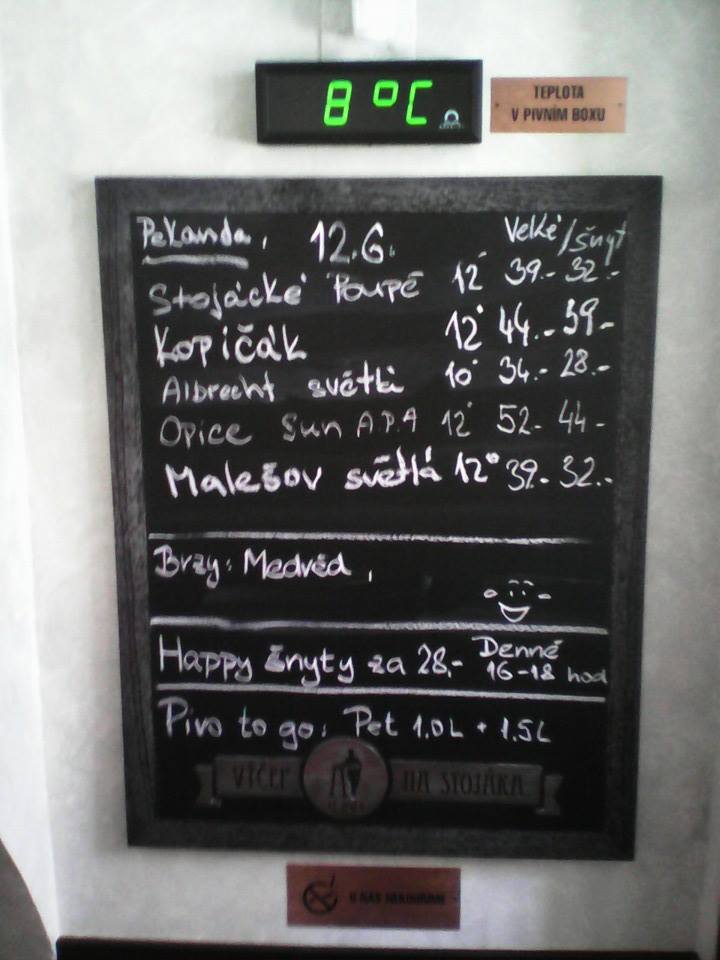 8°C
TEPLOTA
V PIVNÍM BOXU
Pekanda, 12.6. Velké/šnyt
Stojácké Poupě 12° 39.- 32.-
Kopičák 12° 44.- 39-
Albrecht světlá 10° 34.- 28.-
Opice Sun A.P.A 12° 52- 44-
Malešov světlá 12° 39.- 32.-
Brzy: Medvěd,
Happy šnyty za 28,- Denně
16-18 hod
Pivo to go: Pet 1.0L + 1.5L
VÍČEP NA STOJÁKA
U NÁS NEKOUŘÍME